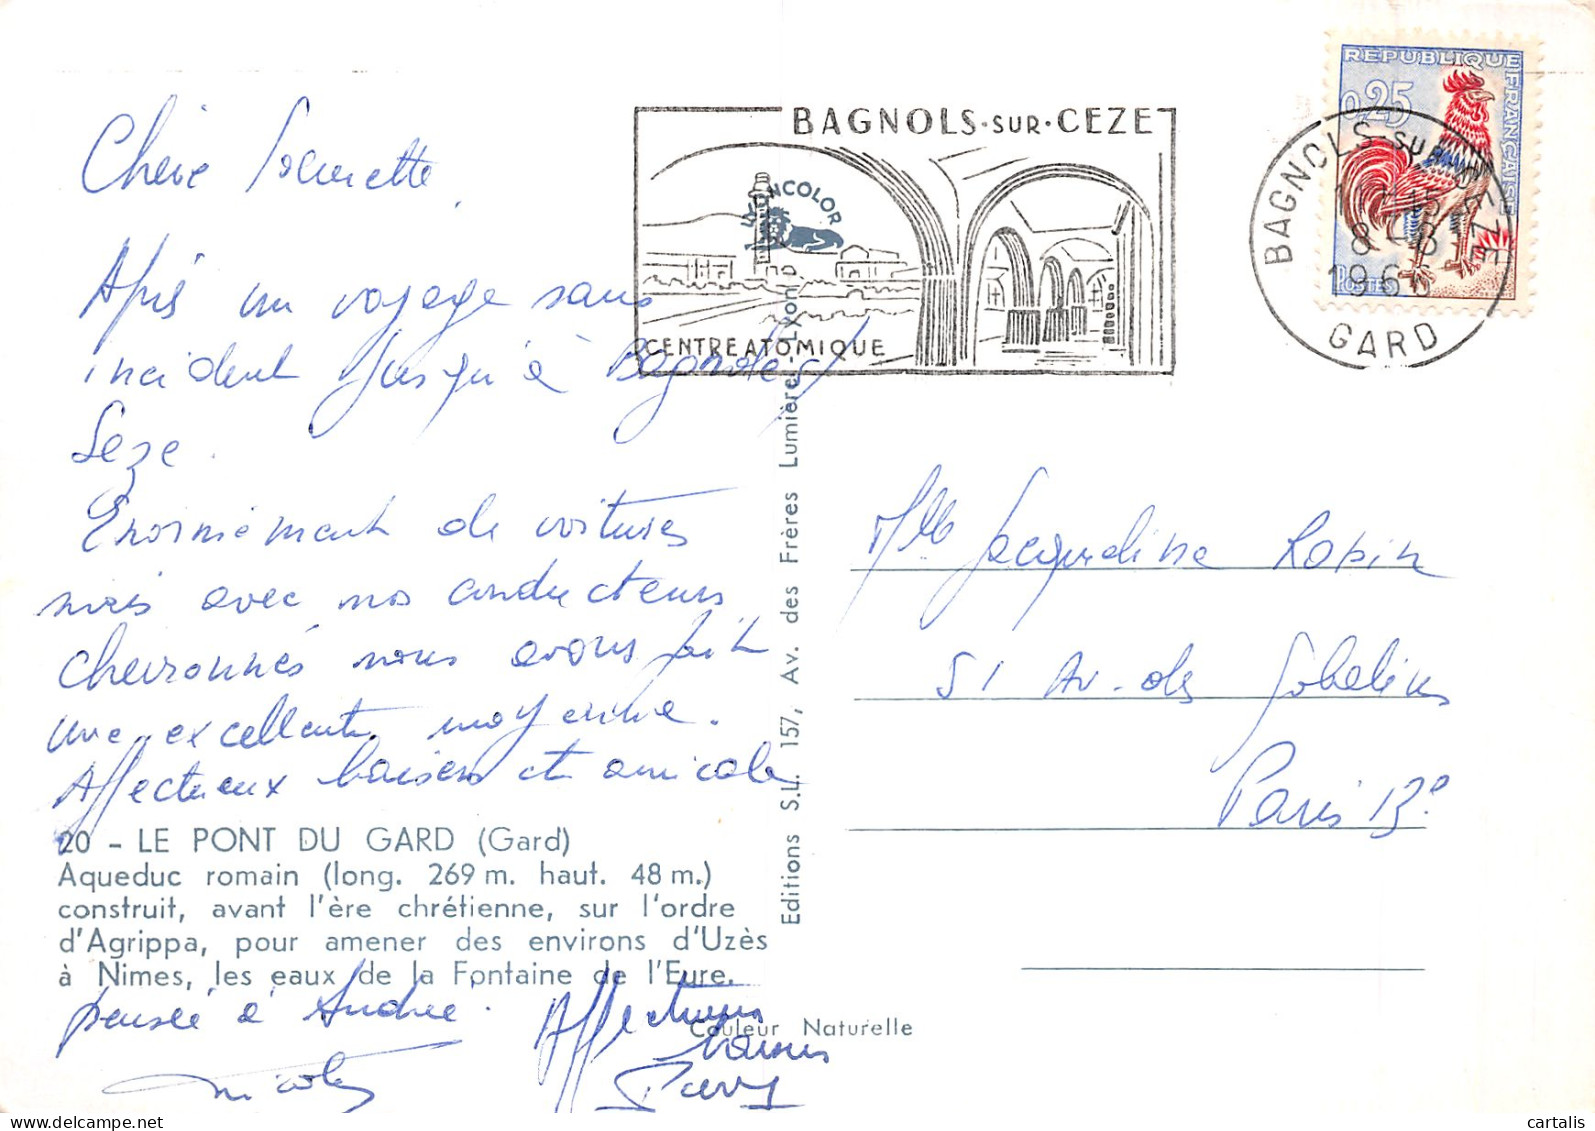 Chère
Après un voyage sans
incident jusqu'à Bagnoles/
Seze.
Enormément de voitures
mais avec nos conducteurs
chevronnés nous avons fait
une excellente moyenne.
Affectueux baisers et amicale
20 - LE PONT DU GARD (Gard)
Aqueduc romain (long. 269 m. haut. 48 m.)
construit, avant l'ère chrétienne, sur l'ordre
d'Agrippa, pour amener des environs d'Uzès
à Nimes, les eaux de la Fontaine de l'Eure.
pensée à Andrée.
Affectueux
baisers
Couleur Naturelle
Editions S.L. 157, Av. des Frères Lumière, Lyon
BAGNOLS·SUR·CEZE
LYONCOLOR
CENTRE ATOMIQUE
REPUBLIQUE FRANÇAISE
0,25
POSTES
BAGNOLS-SUR-CEZE
8
196
GARD
Mlle Jacqueline
51 Av. des Gobelins
Paris 13e
cartalis